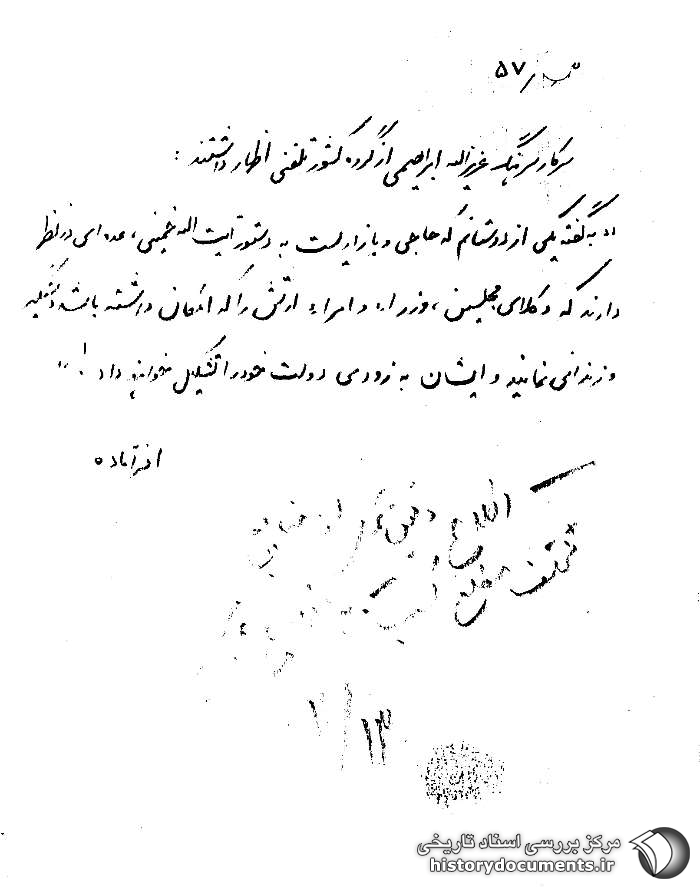 ۵۷/
سرکار سرهنگ عزیزاله ابراهیمی از گروه کشور تلفنی اظهار داشتند :
«به گفته یکی از دوستانم که حاجی و بازاریست به دستور آیت اله خمینی، عده ای در نظر
دارند که وکلای مجلسین، وزراء و امراء ارتش را که امکان داشته باشد دستگیر
و زندانی نمایند و ایشان به زودی دولت خود را تشکیل خواهند داد!»
افسر آماده
اطلاع دقیق از
مختلف مطلع
۱۳/
مرکز بررسی اسناد تاریخی
historydocuments.ir